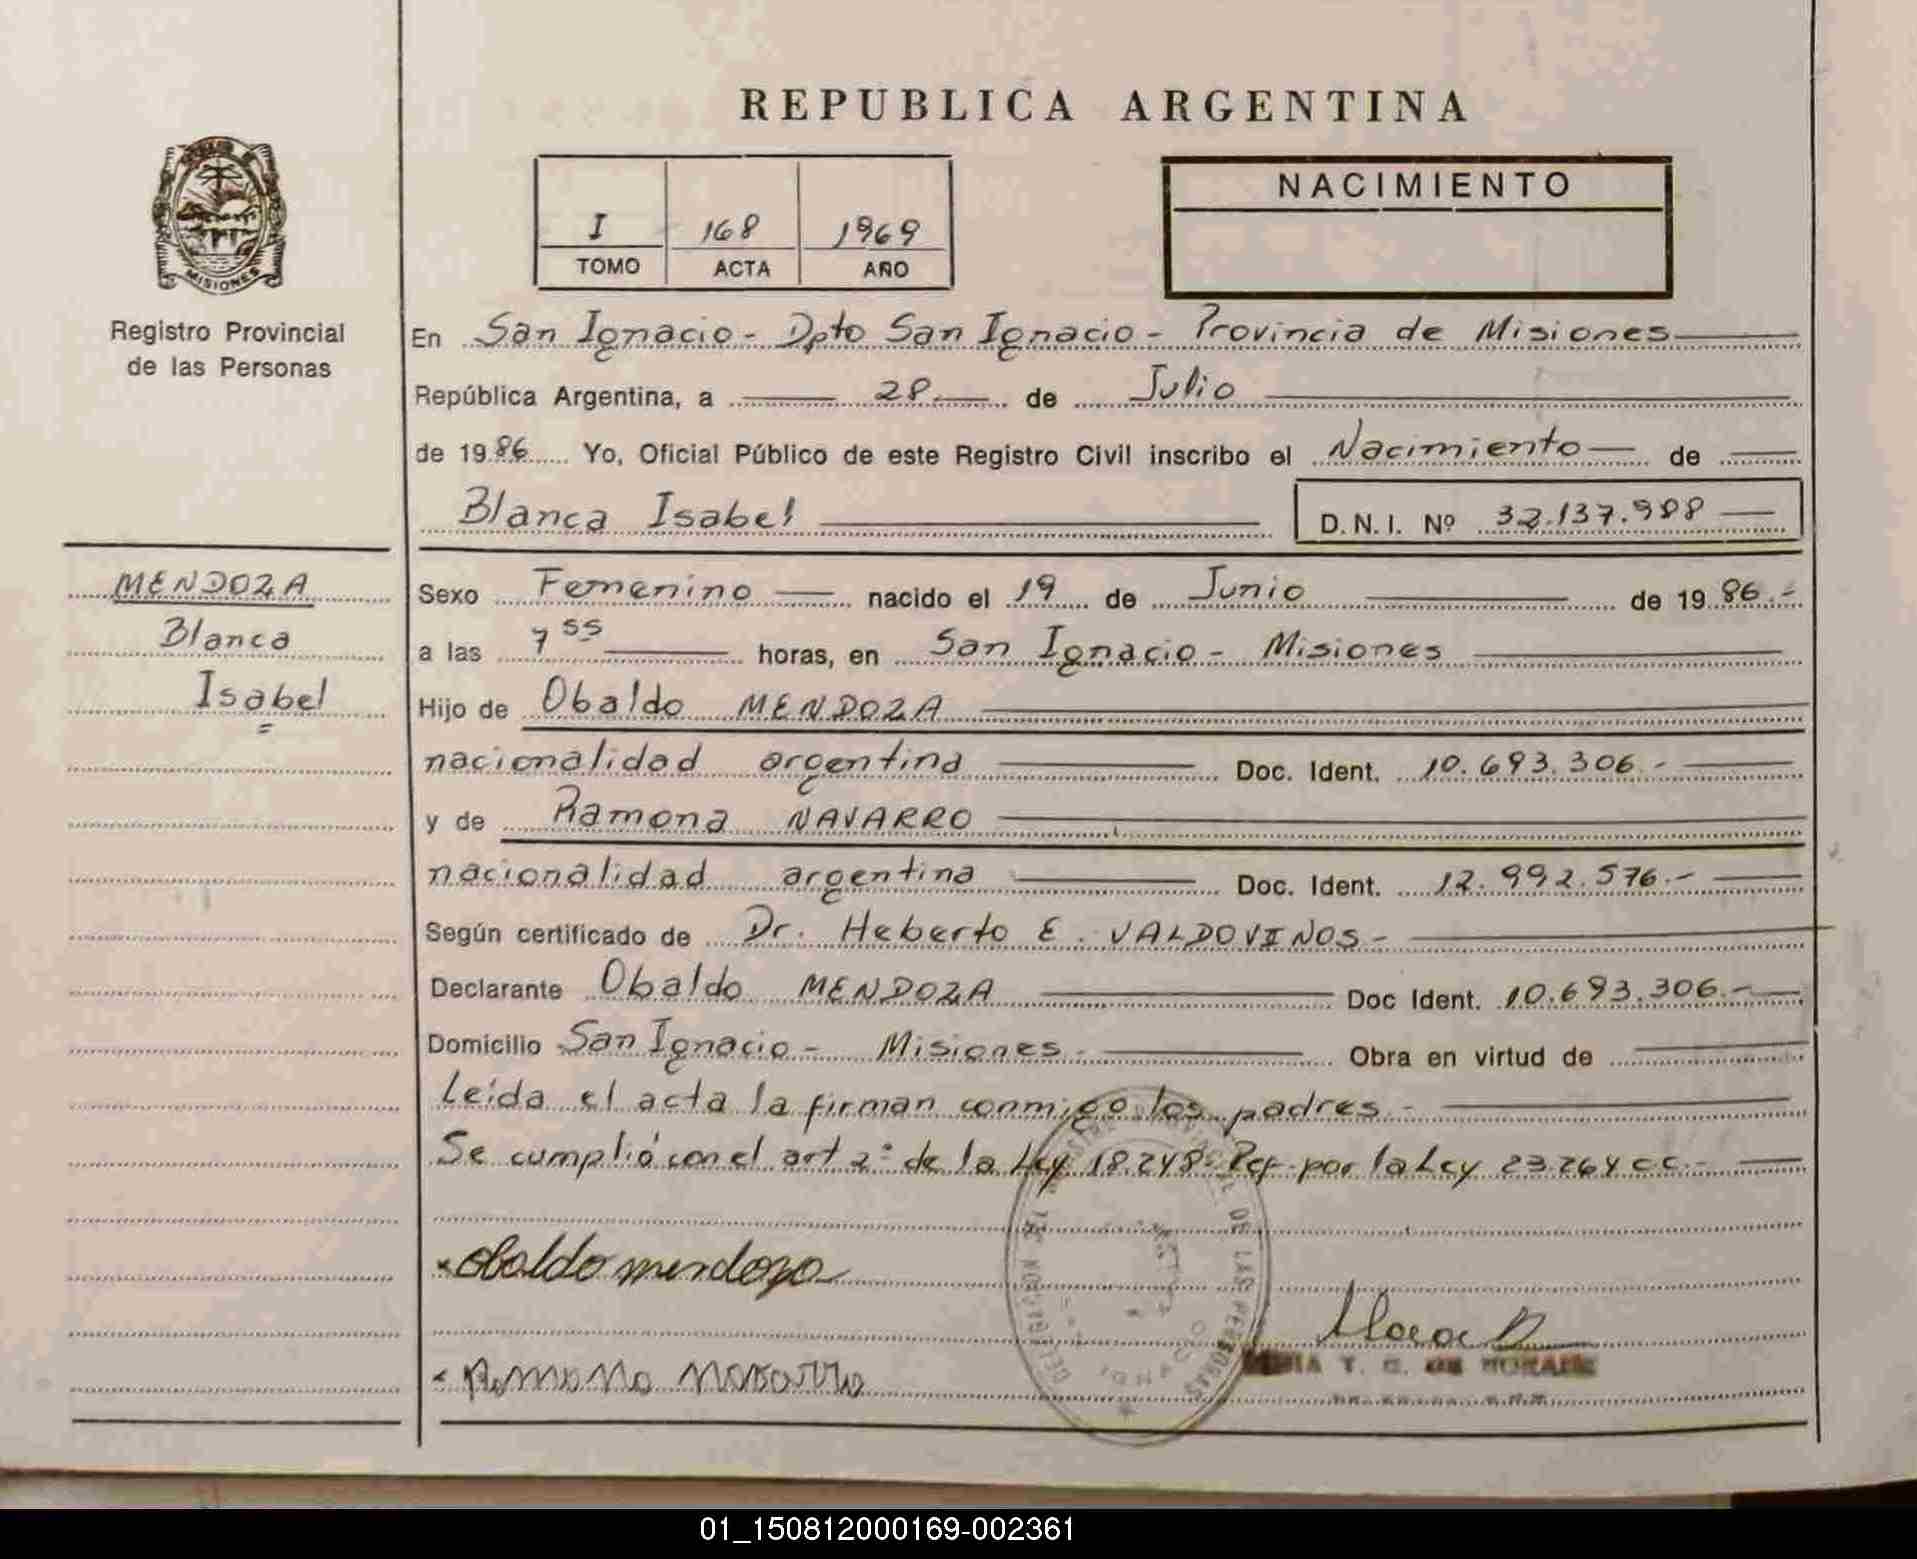 REPUBLICA ARGENTINA
NACIMIENTO
I 168 1969
TOMO ACTA AÑO
MISIONES
Registro Provincial
de las Personas
En San Ignacio - Dpto San Ignacio - Provincia de Misiones
República Argentina, a 28 de Julio
de 1986 Yo, Oficial Público de este Registro Civil inscribo el Nacimiento de
Blanca Isabel D.N.I. Nº 32.137.988
MENDOZA
Blanca
Isabel
Sexo Femenino nacido el 19 de Junio de 1986.-
a las 7 55 horas, en San Ignacio - Misiones
Hijo de Obaldo MENDOZA
nacionalidad argentina Doc. Ident. 10.693.306.-
y de Ramona NAVARRO
nacionalidad argentina Doc. Ident. 12.992.576.-
Según certificado de Dr. Heberto E. VALDOVINOS-
Declarante Obaldo MENDOZA Doc Ident. 10.693.306.-
Domicilio San Ignacio - Misiones. Obra en virtud de
Leída el acta la firman conmigo los padres.-
Se cumplió con el art 2º de la Ley 18.248- Ref. por la Ley 23.264 C.C.-
Obaldo mendoza
Ramona Navarro
T. G. DE
DE LAS PERSONAS
01_150812000169-002361